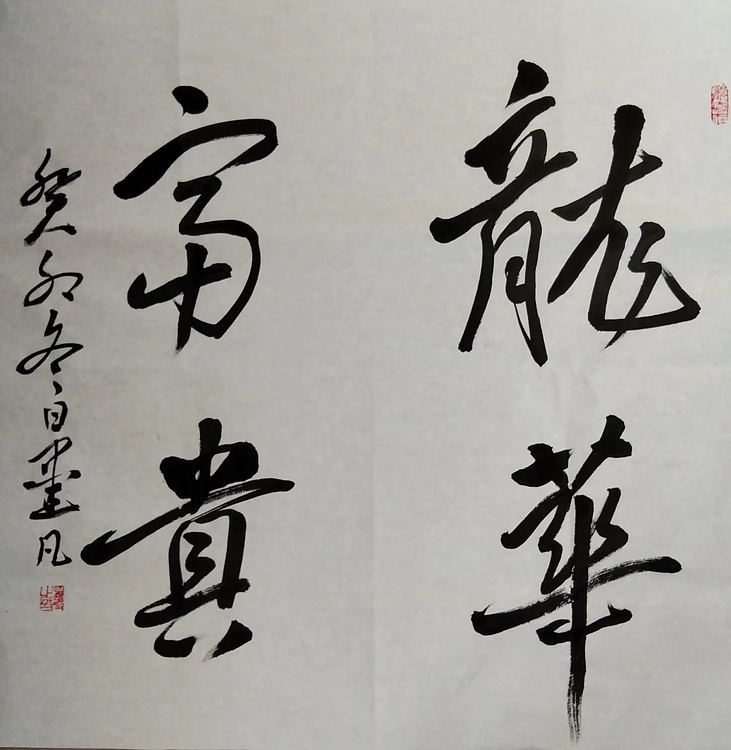 龍華
富貴
癸卯冬日建凡